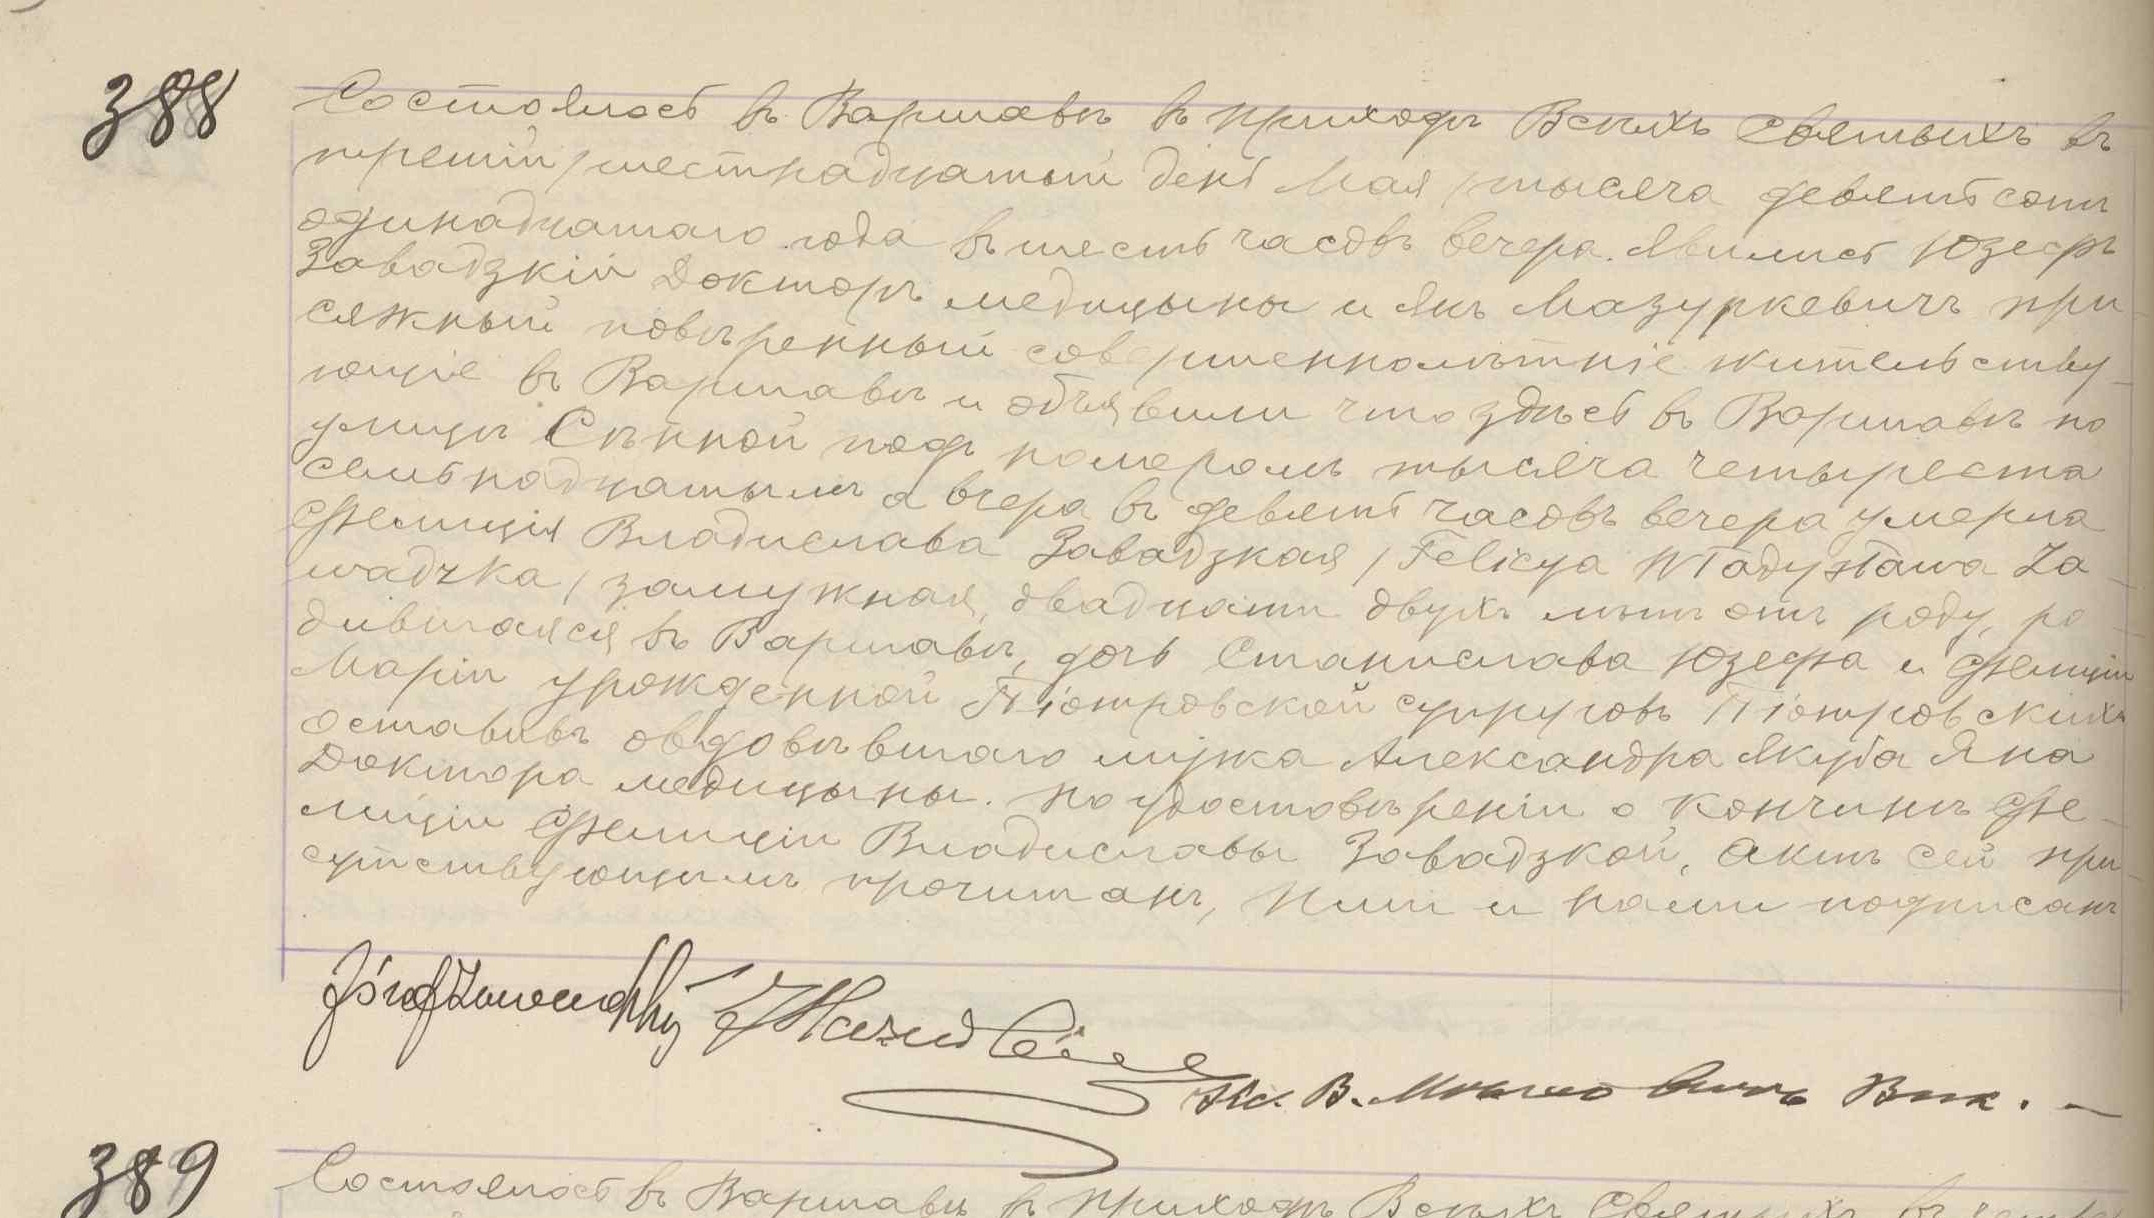 388
Состоялось въ Варшавѣ въ приходѣ Всѣхъ Святыхъ въ
третій /шестнадцатый день Мая/ тысяча девятьсотъ
одинадцатаго года въ шесть часовъ вечера. Явились Юзефъ
Завадзкій Докторъ медицыны и Янъ Мазуркевичъ при-
сяжный повѣренный совершеннолѣтніе жительству-
ющіе въ Варшавѣ и объявили что здѣсь въ Варшавѣ по
улицѣ Сѣнной подъ номеромъ тысяча четыреста
семьнадцатымъ а вчера въ девять часовъ вечера умерла
Фелиція Владислава Завадзкая /Felicya Władysława Za-
wadzka/ замужная, двадцати двухъ лѣтъ отъ роду, ро-
дившаяся въ Варшавѣ, дочь Станислава Юзефа и Фелиціи
Маріи урожденной Піотровской супруговъ Піотровскихъ
оставивъ овдовѣвшаго мужа Александра Якуба Яна
Доктора медицыны. По удостовѣреніи о кончинѣ Фе-
лиціи Фелиціи Владиславы Завадзкой, Актъ сей при-
сутствующимъ прочитанъ, Ими и нами подписанъ
Józef Zawadzki
Кс. В. Вик. –
389
Состоялось въ Варшавѣ въ приходѣ Всѣхъ Святыхъ въ